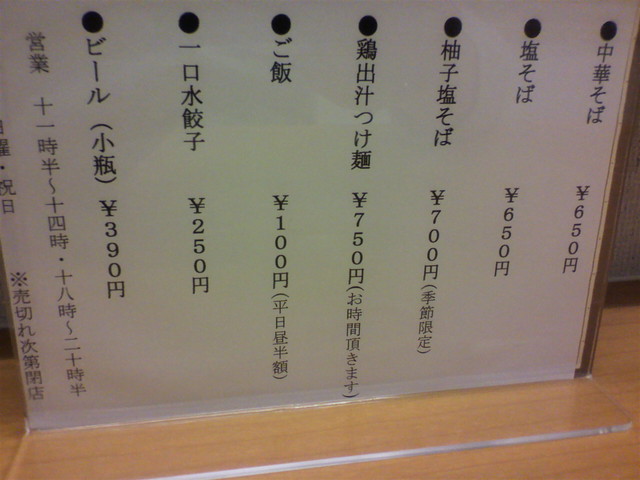 ●中華そば ￥650円
●塩そば ￥650円
●柚子塩そば ￥700円(季節限定)
●鶏出汁つけ麺 ￥750円(お時間頂きます)
●ご飯 ￥100円(平日昼半額)
●一口水餃子 ￥250円
●ビール（小瓶）￥390円
営業 十一時半～十四時・十八時～二十時半
※売切れ次第閉店
曜・祝日